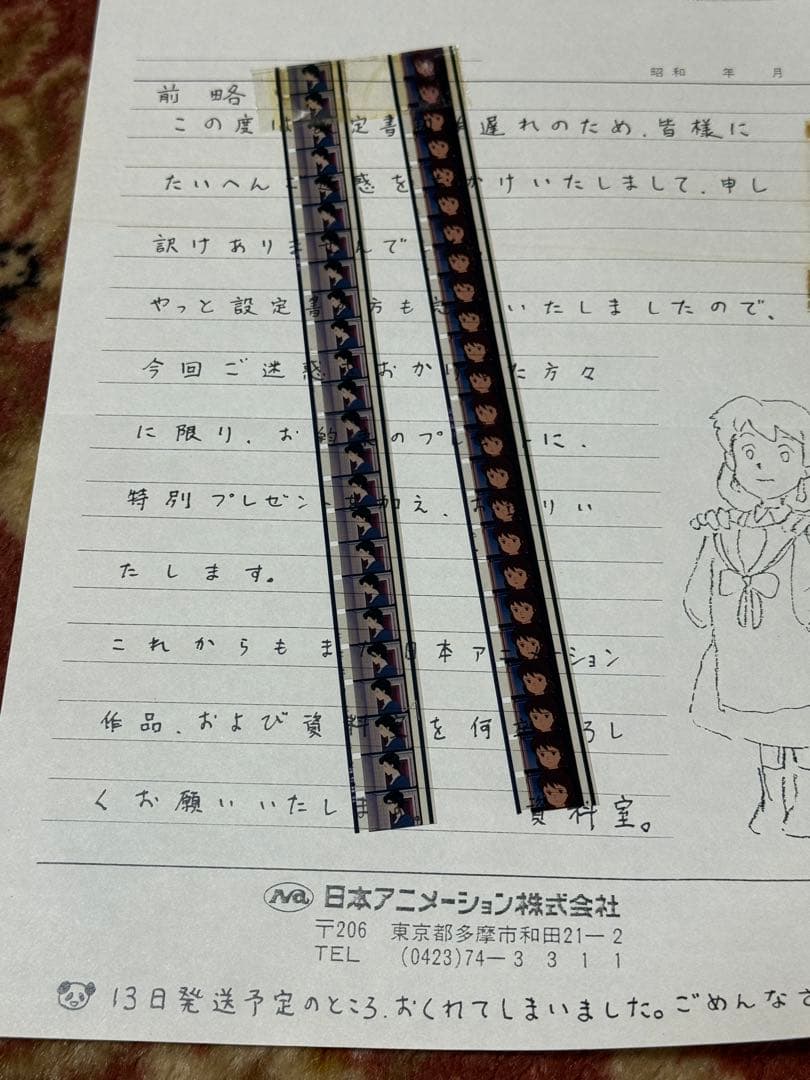 昭和　年　月
前略
この度は 定書 遅れのため、皆様に
たいへん 惑を かけいたしまして、申し
訳けありま んで
やっと設定書 方も いたしましたので、
今回ご迷惑 おかけ た方々
に限り、お約 のプレ トに、
特別プレゼント を加え、お りい
たします。
これからもま 日本アニメーション
作品、および資料 を何 ろし
くお願いいたしま 。 資料室。
Na 日本アニメーション株式会社
〒206 東京都多摩市和田21－2
TEL (0423)74－3311
13日発送予定のところ、おくれてしまいました。ごめんなさ